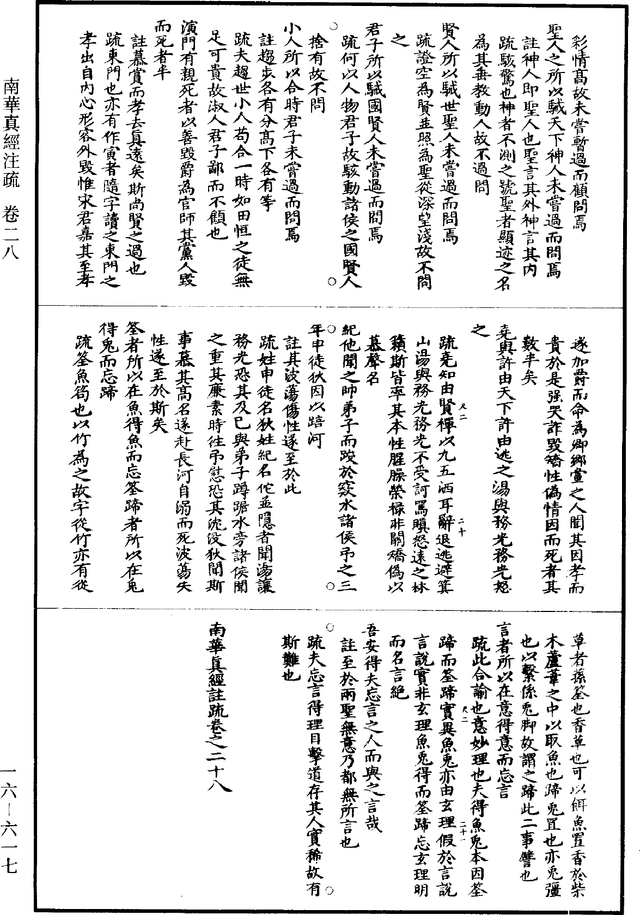 南華真經注疏　卷二八
彩情高故未嘗暫過而顧問焉
聖人之所以駴天下神人未嘗過而問焉
註神人即聖人也聖言其外神言其內
疏駭驚也神者不測之號聖者顯迹之名
為其垂教動人故不過問
賢人所以駴世聖人未嘗過而問焉
疏證空為賢並照為聖從深望淺故不問
之
君子所以駴國賢人未嘗過而問焉
疏何以人物君子故駭動諸侯之國賢人
捨有故不問
小人所以合時君子未嘗過而問焉
註趨步各有分高下各有等
疏夫趨世小人苟合一時如田恒之徒無
足可貴故淑人君子鄙而不顧也
演門有親死者以善毀爵為官師其黨人毀
而死者半
註慕賞而孝去真遠矣斯尚賢之過也
疏東門也亦有作寅者隨字讀之東門之
孝出自內心形容外毀惟宋君嘉其至孝
遂加爵而命為卿鄉黨之人聞其因孝而
貴於是强哭詐毀矯性偽情因而死者其
數半矣
堯與許由天下許由逃之湯與務光務光怒
之
疏堯知由賢禪以九五洒耳辭退逃避箕
山湯與務光務光不受訶罵瞋怒遠之林
籟斯皆率其本性腥臊榮祿非關矯偽以
慕聲名
紀他聞之帥弟子而踆於窾水諸侯弔之三
年申徒狄因以踣河
註其波蕩傷性遂至於此
疏姓申徒名狄姓紀名佗並隱者聞湯讓
務光恐其及己與弟子蹲踞水旁諸侯聞
之重其廉素時往弔慰恐其沈沒狄聞斯
事慕其高名遂赴長河自溺而死波蕩失
性遂至於斯矣
筌者所以在魚得魚而忘筌蹄者所以在兔
得兔而忘蹄
疏筌魚笱也以竹為之故字從竹亦有從
草者蓀筌也香草也可以餌魚置香於柴
木蘆葦之中以取魚也蹄兔罝也亦兔彊
也以繫係兔脚故謂之蹄此二事譬也
言者所以在意得意而忘言
疏此合諭也意妙理也夫得魚兔本因筌
蹄而筌蹄實異魚兔亦由玄理假於言說
言說實非玄理魚兔得而筌蹄忘玄理明
而名言絕
吾安得夫忘言之人而與之言哉
註至於兩聖無意乃都無所言也
疏夫忘言得理目擊道存其人實稀故有
斯難也
南華真經註疏卷之二十八
一六—六一七